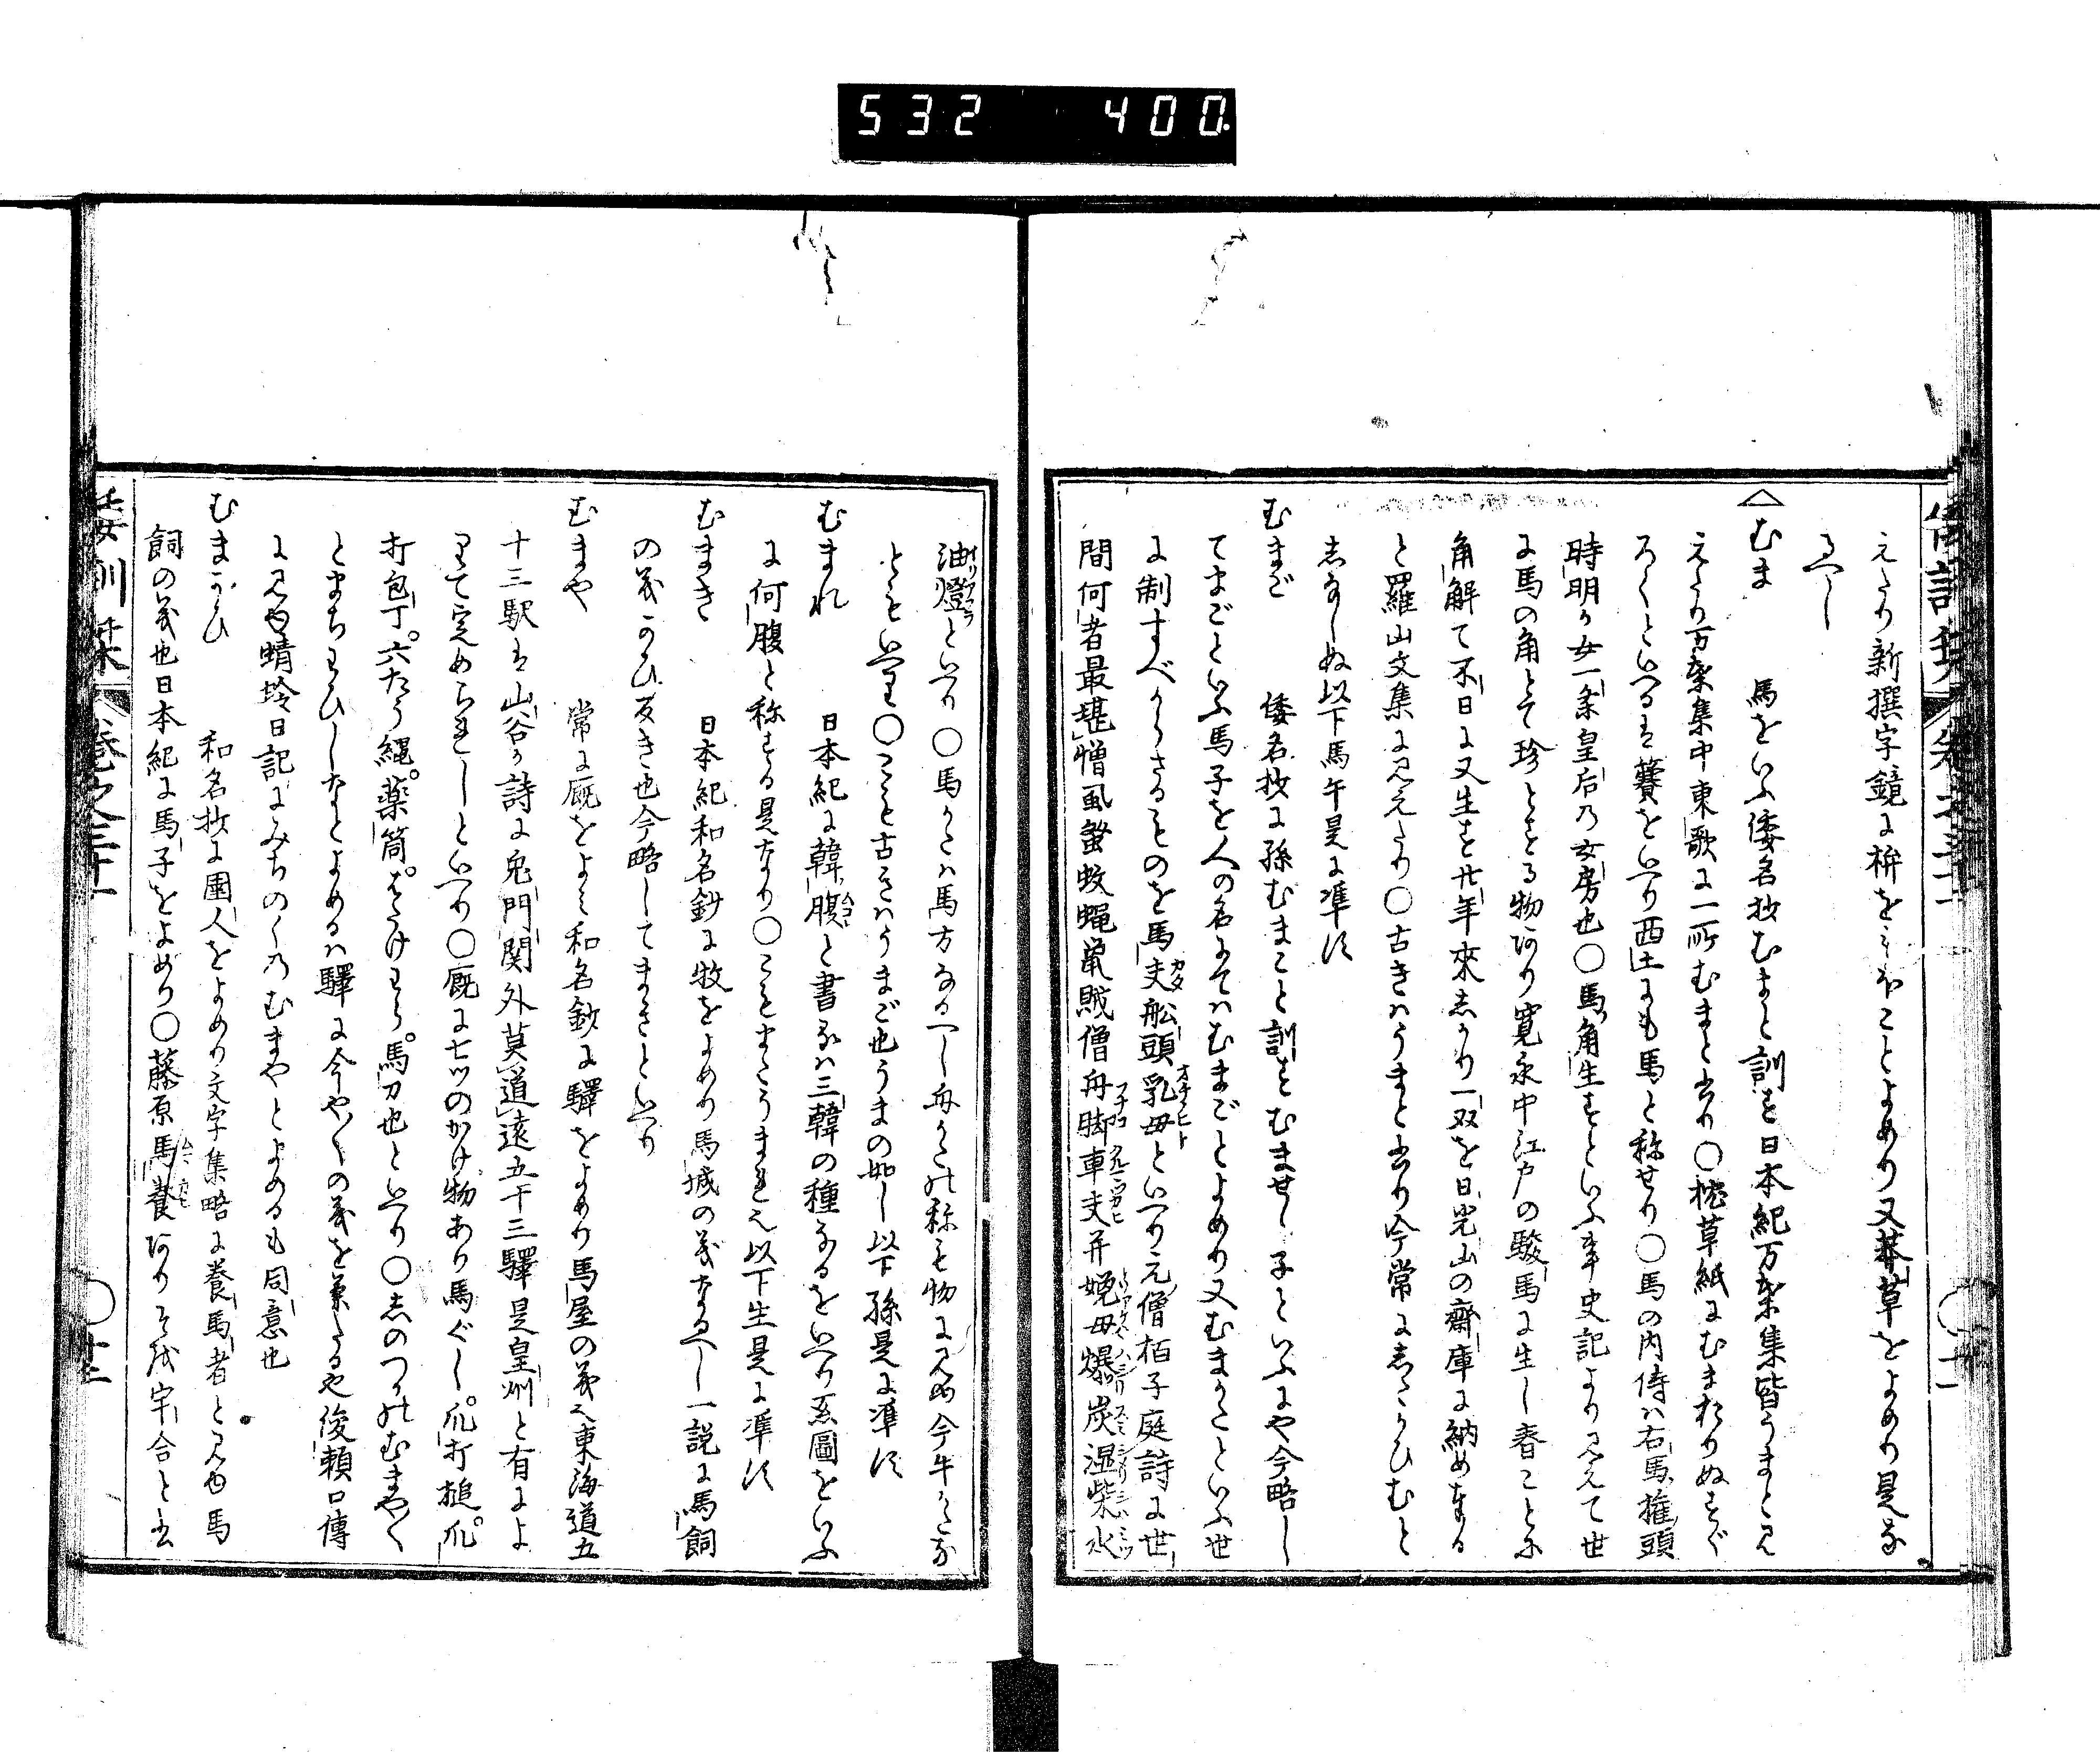 532 400
えたり新撰字鏡に桙をミほことよめり又莽草をよめり是な
るへし
△むま 馬をいふ倭名抄むまと訓せり日本紀万葉集皆うまと見
えたり万葉集中東歌に一所むまと出り〇枕草紙にむまおりぬすぐ
ろくといへるは賽をいへり西土にも馬と称せり〇馬の内侍ハ右馬権頭
時明か女一条皇后の女房也〇馬角生すといふ事史記より見えて世
に馬の角とて珍とする物あり寛永中江戸の駿馬に生し春ことに
角解て不日に又生す廿年来しかり一双を日光山の齋庫に納め奉る
と羅山文集に見えたり〇古きハうまと出り今常にしたかひむと
しるしぬ以下馬午是に準す
むまご 倭名抄に孫むまこと訓せりむませし子といふにや今略し
てまごといふ馬子を人の名にてハむまごとよめり又むまかたといふ世
に制すべからさるものを馬夫舩頭乳母といへり元僧栢子庭詩に世
間何者最堪憎虱蚤蚊蠅鼠賊僧舟脚車夫并娩母爆炭湿柴水
油燈といへり〇馬かたハ馬方なるへし舟かたの称も物に見ゆ今牛かたな
ともいへり〇こを古きハうまご也うまの如し以下孫是に準す
むまれ 日本紀に韓腹と書るハ三韓の種なるをいへり系圖をいふ
に何腹と称する是なり〇こをまたうまれ也以下生是に準す
むまき 日本紀和名鈔に牧をよめり馬城の義なるへし一説に馬飼
の義かひ反き也今略してまきといへり
むまや 常に厩をよミ和名鈔に驛をよめり馬屋の義也東海道五
十三駅は山谷か詩に鬼門関外莫道遠五十三驛是皇州と有によ
りて定めらしといへり〇厩に七ツのかけ物あり馬ぐし。爪打槌。爪
打包丁。六たう縄。薬筒。はたけすら。馬刀也といへり〇しのつかのむまや〱
とまちわひしなとよめるハ驛に今や〱の義を兼たるや俊頼口傳
に見ゆ蜻蛉日記にみちのくのむまやとよめるも同意也
むまかひ 和名抄に圉人をよめり文字集略に養馬者と見ゆ馬
飼の義也日本紀に馬子をよめり〇藤原馬養あり又は宇合と書
倭訓栞 巻之三十一